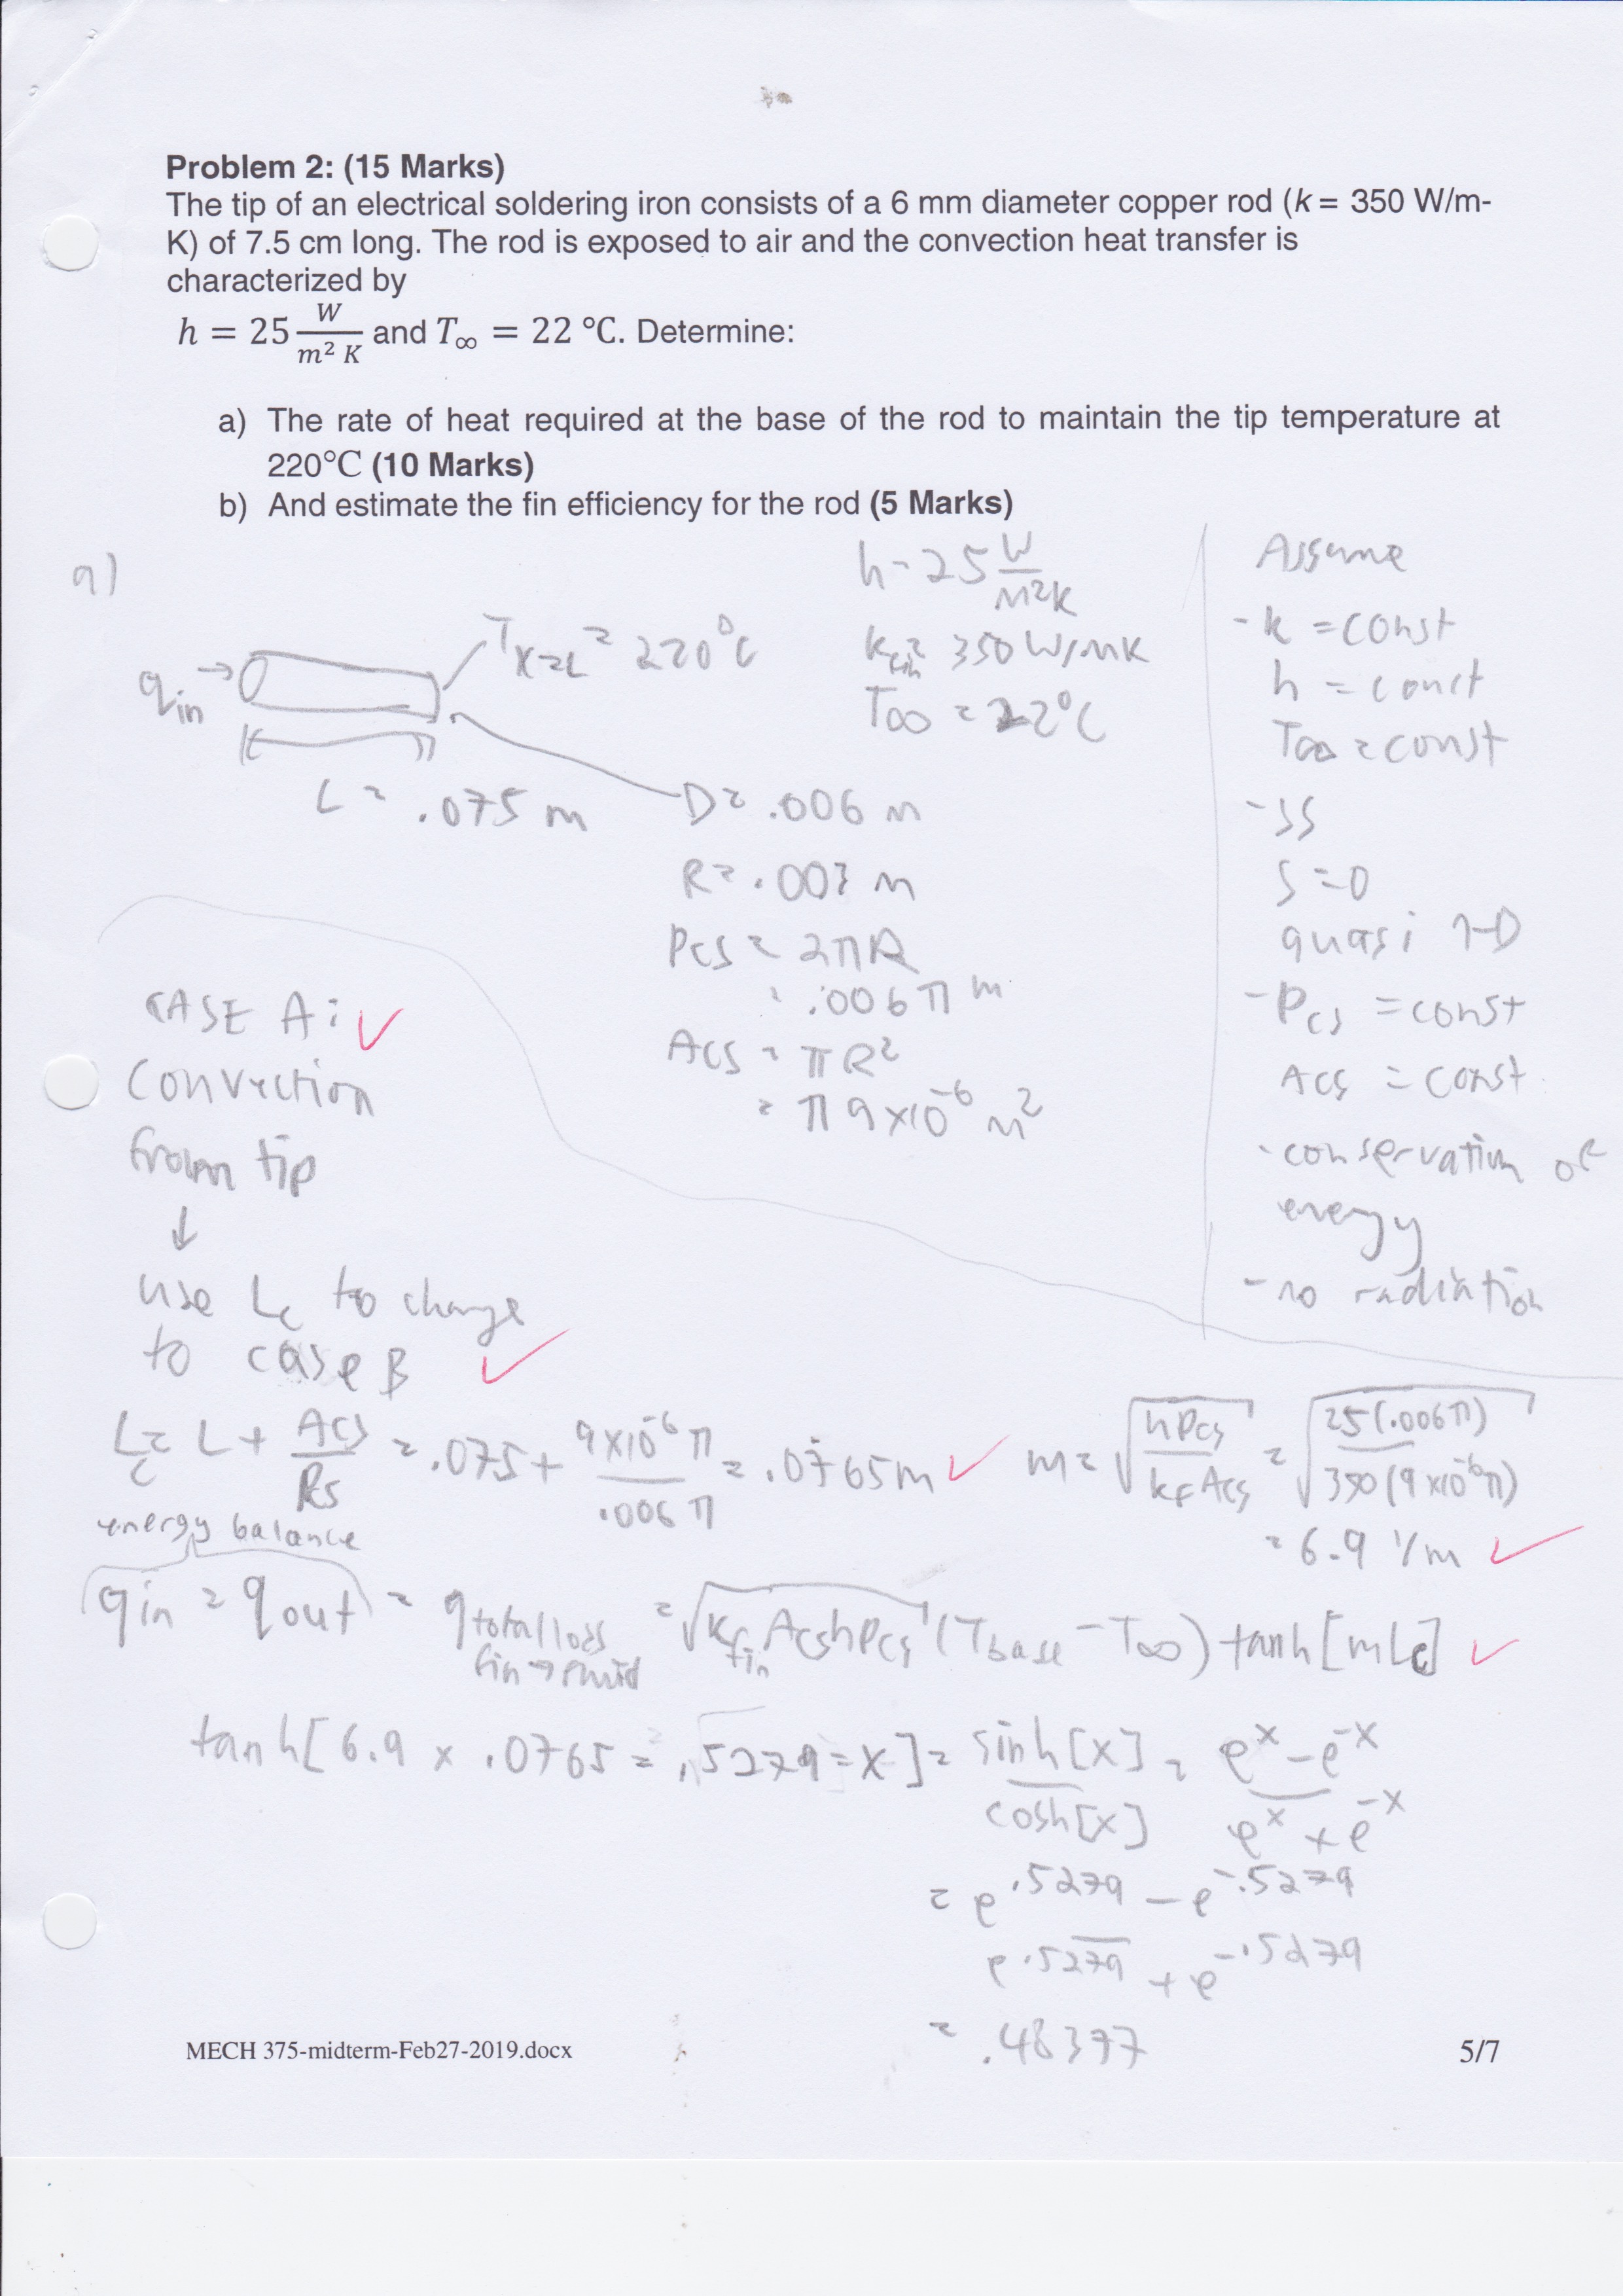 Problem 2: (15 Marks)
The tip of an electrical soldering iron consists of a 6 mm diameter copper rod (k = 350 W/m-
K) of 7.5 cm long. The rod is exposed to air and the convection heat transfer is
characterized by
h = 25 W/m² K and T∞ = 22 °C. Determine:
a) The rate of heat required at the base of the rod to maintain the tip temperature at
220°C (10 Marks)
b) And estimate the fin efficiency for the rod (5 Marks)
a)
q_in →
T_x=L = 220°C
L = .075 m
h = 25 W/m²K
k_fin = 350 W/mK
T∞ = 22°C
D = .006 m
R = .003 m
Pcs = 2πR
= .006π m
Acs = πR²
= π 9x10⁻⁶ m²
Assume
- k = const
h = const
T∞ = const
- SS
S = 0
quasi 1-D
- Pcs = const
Acs = const
- conservation of
energy
- no radiation
CASE A:
Convection
from tip
↓
use Lc to change
to case B
Lc = L + Acs/Pcs = .075 + 9x10⁻⁶π/.006π = .0765m
m = √(hPcs/kfAcs) = √(25(.006π)/350(9x10⁻⁶π))
= 6.9 1/m
energy balance
qin = qout = q total loss fin→fluid = √(k_fin Acs h Pcs) (Tbase - T∞) tanh[mLc]
tanh[6.9 x .0765 = .5279 = x] = sinh[x]/cosh[x] = (e^x - e^-x)/(e^x + e^-x)
= (e^.5279 - e^-.5279)/(e^.5279 + e^-.5279)
= .48397
MECH 375-midterm-Feb27-2019.docx
5/7